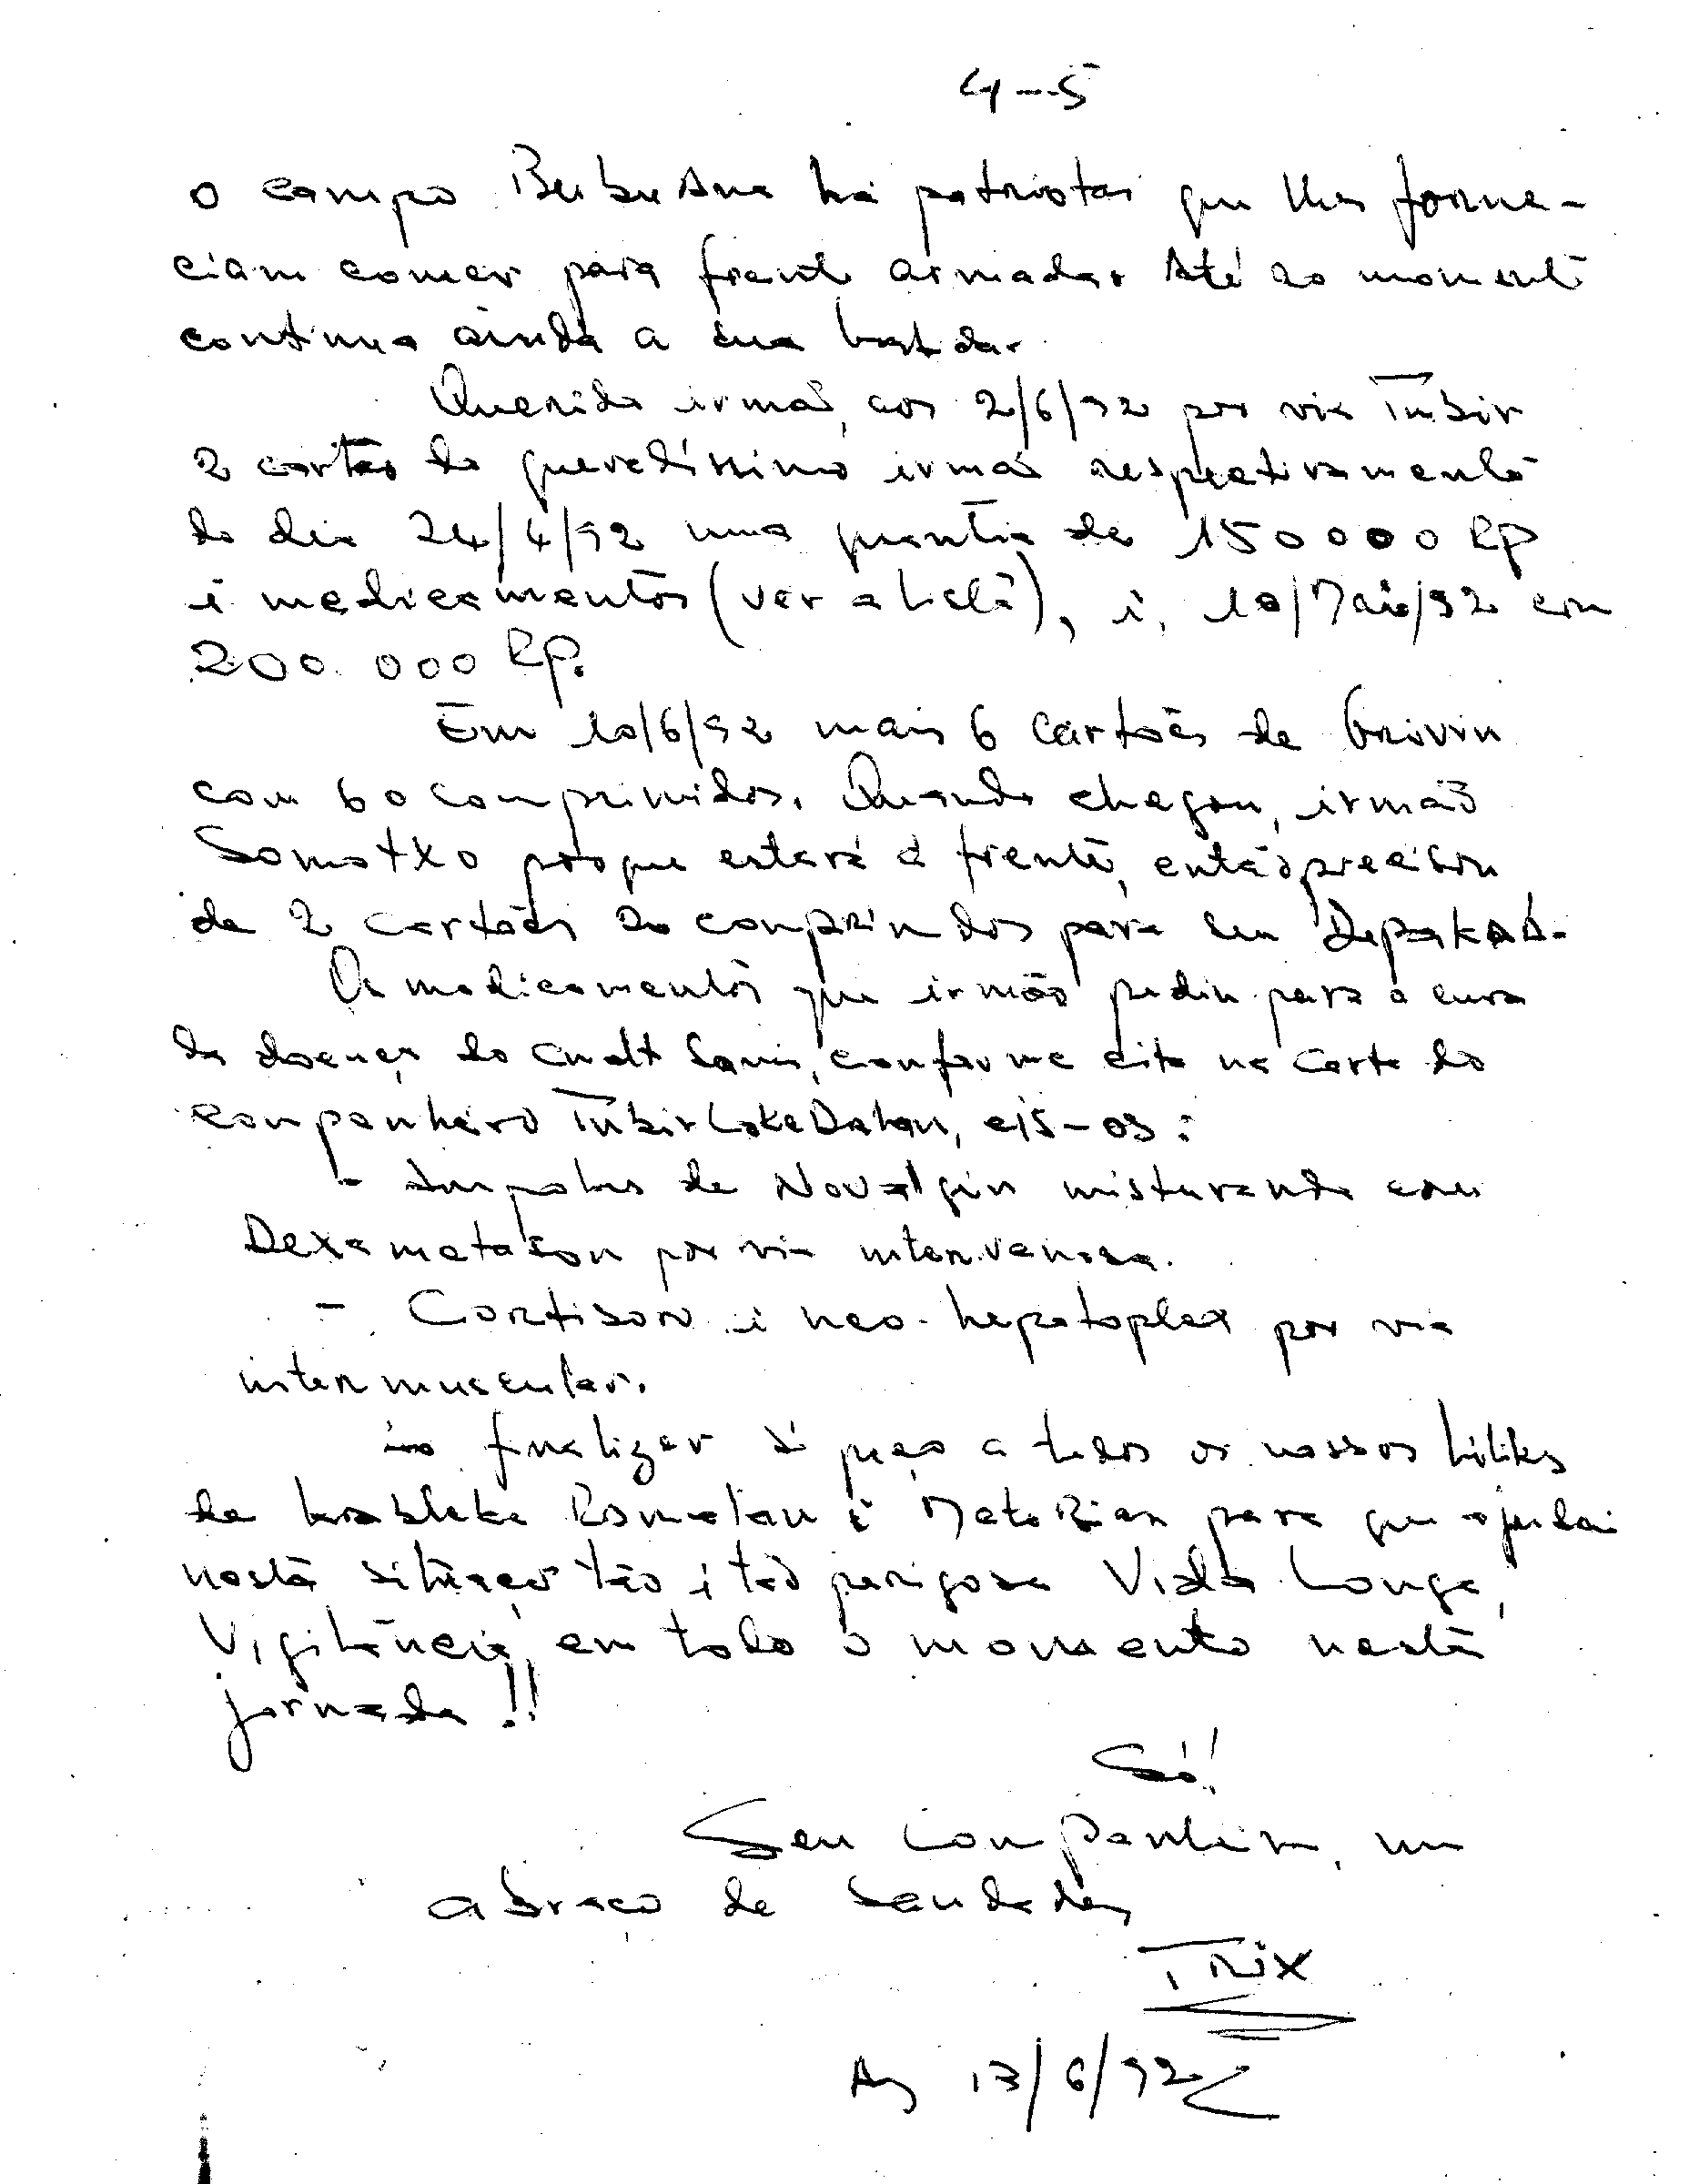 4-5
o campo há patriotas que lhes forne-
ciam comer para frente armada. Até ao momentō
continua ainda a sua
Querido irmão, aos 2/6/92 por via Tubir
2 cartas do queredíssimo irmão respectivamente
do dia 24/4/92 uma quantia de 150000 RP
i medicamentos (ver a lista), i, 10/Maio/92 com
200.000 RP.
Em 10/6/92 mais 6 cartões de
com 60 comprimidos. Quando chegou, irmão
Somotxo porque estará à frente, então precisou
de 2 cartões 20 comprimidos para seu
Os medicamentos que irmão pediu para a cura
da doença do cmdt Sanis, conforme cita na carta do
companheiro Tubir LokeDahan, eis-os:
- Ampolas de Novalgin misturando com
Dexametason por via intervenosa.
- Cortison i neo-hepatoplex por via
intermuscular.
Ao finalizar só peço a todos os nossos
de para que ajudai
nesta situação tão i tão perigosa Vida Longa,
Vigilância, em todo o momento nesta
jornada!!
Só!
Seu companheiro, um
abraço de saudades
TRix
Aos 13/6/92